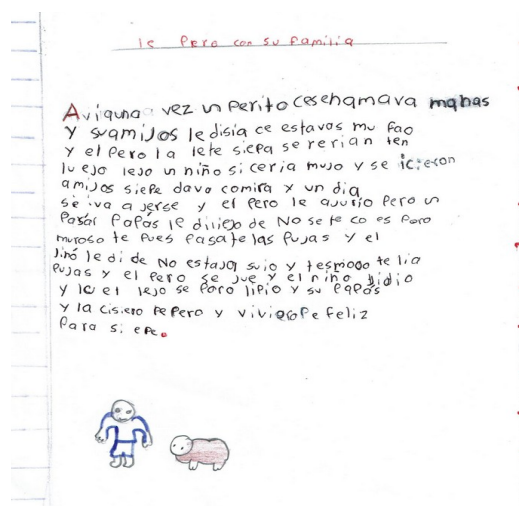 ls Pero con su Pamilia
Aviauna vez un Perito cesehamava mahas
y suamiJos le disia ce estavos mu fao
y el Pero la lete siepa se rerian ten
luejo lejo un niño si ceria mujo y se icieron
amiJos siePe dava comira y un dia
se iva a Jerse y el Pero le ajusio Pero un
Pasar PaPás le dilieJo de No se te co es Poro
muroso te Pues Pasate las PuJas y el
le di de No estaja suio y tesmodo te lia
PuJas y el Pero se Jue y el niño Didio
y le et lejo se Poro liPio y su PaPás
y la cisiero te Pero y viviero Pe feliz
Para si ePe.